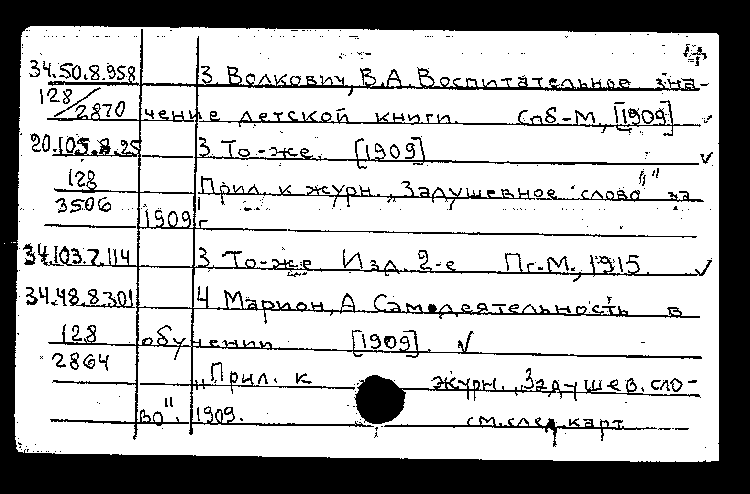 34.50.8.958 3 Волкович, В.А. Воспитательное зна-
128/2870 чение детской книги. Спб-М, [1909] ✓
20.105.8.25 3 То-же. [1909] ✓
128 Прил. к журн. „Задушевное слово" за
3506 1909 г
34.103.7.114 3 То-же Изд. 2-е Пг.-М., 1915. ✓
34.48.8.301 4 Марион, А. Самодеятельность в
128 обучении [1909]. ✓
2864 „Прил. к журн. „Задушев. сло-
во". 1909. см. след. карт